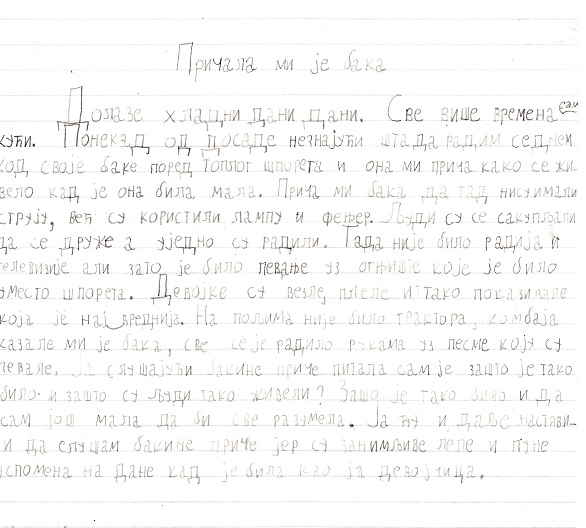 Причала ми је бака
Долазе хладни дани дани. Све више времена сам
кући. Понекад од досаде незнајући шта да радим седнем
код своје баке поред топлог шпорета и она ми прича како се жи-
вело кад је она била мала. Прича ми бака да тад нису имали
струју, већ су користили лампу и фењер. Људи су се сакупљали
да се друже а уједно су радили. Тада није било радија и
телевизије али зато је било певање уз огњиште које је било
уместо шпорета. Девојке су везле, плеле и тако показивале
која је нај вреднија. На пољима није било трактора, комбаја
казале ми је бака, све се је радило рукама уз песме коју су
певале. Ја слушајући бакине приче питала сам је зашто је тако
било и зашто су људи тако живели? Зашо је тако било и да
сам још мала да би све разумела. Ја ћу и даље настави-
ти да слушам бакине приче јер су занимљиве лепе и пуне
успомена на дане кад је била као ја девојчица.